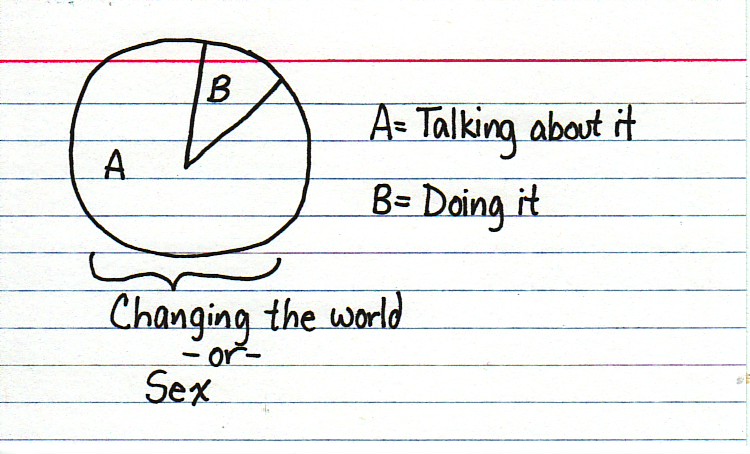 B
A
A= Talking about it
B= Doing it
Changing the world
-or-
Sex